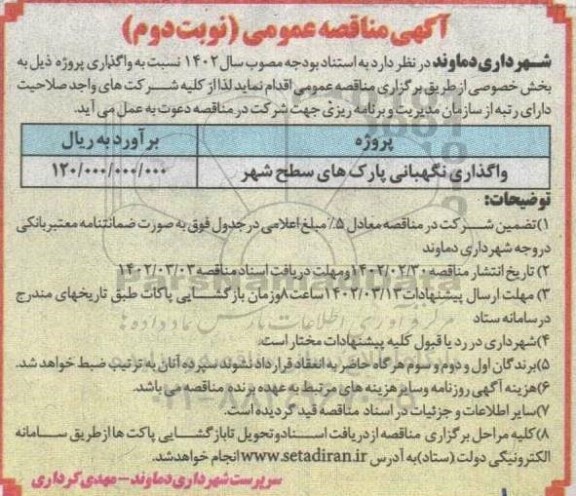 آگهی مناقصه عمومی (نوبت دوم)
شهرداری دماوند در نظر دارد به استناد بودجه مصوب سال ۱۴۰۲ نسبت به واگذاری پروژه ذیل به
بخش خصوصی از طریق برگزاری مناقصه عمومی اقدام نماید لذا از کلیه شرکت های واجد صلاحیت
دارای رتبه از سازمان مدیریت و برنامه ریزی جهت شرکت در مناقصه دعوت به عمل می آید.
پروژه برآورد به ریال
واگذاری نگهبانی پارک های سطح شهر ۱۲۰/۰۰۰/۰۰۰/۰۰۰
توضیحات:
۱)تضمین شرکت در مناقصه معادل ۵٪ مبلغ اعلامی در جدول فوق به صورت ضمانتنامه معتبر بانکی
در وجه شهرداری دماوند
۲) تاریخ انتشار مناقصه ۱۴۰۲/۰۲/۳۰ ومهلت دریافت اسناد مناقصه ۱۴۰۲/۰۳/۰۳
۳) مهلت ارسال پیشنهادات ۱۴۰۲/۰۳/۱۳ ساعت ۸ وزمان بازگشایی پاکات طبق تاریخهای مندرج
در سامانه ستاد
۴)شهرداری در رد یا قبول کلیه پیشنهادات مختار است.
۵)برندگان اول و دوم و سوم هرگاه حاضر به انعقاد قرارداد نشوند سپرده آنان به ترتیب ضبط خواهد شد.
۶)هزینه آگهی روزنامه وسایر هزینه های مرتبط به عهده برنده مناقصه می باشد.
۷)سایر اطلاعات و جزئیات در اسناد مناقصه قید گردیده است.
۸)کلیه مراحل برگزاری مناقصه از دریافت اسناد و تحویل تا بازگشایی پاکت ها از طریق سامانه
الکترونیکی دولت (ستاد) به آدرس www.setadiran.ir انجام خواهد شد.
سرپرست شهرداری دماوند - مهدی کرداری